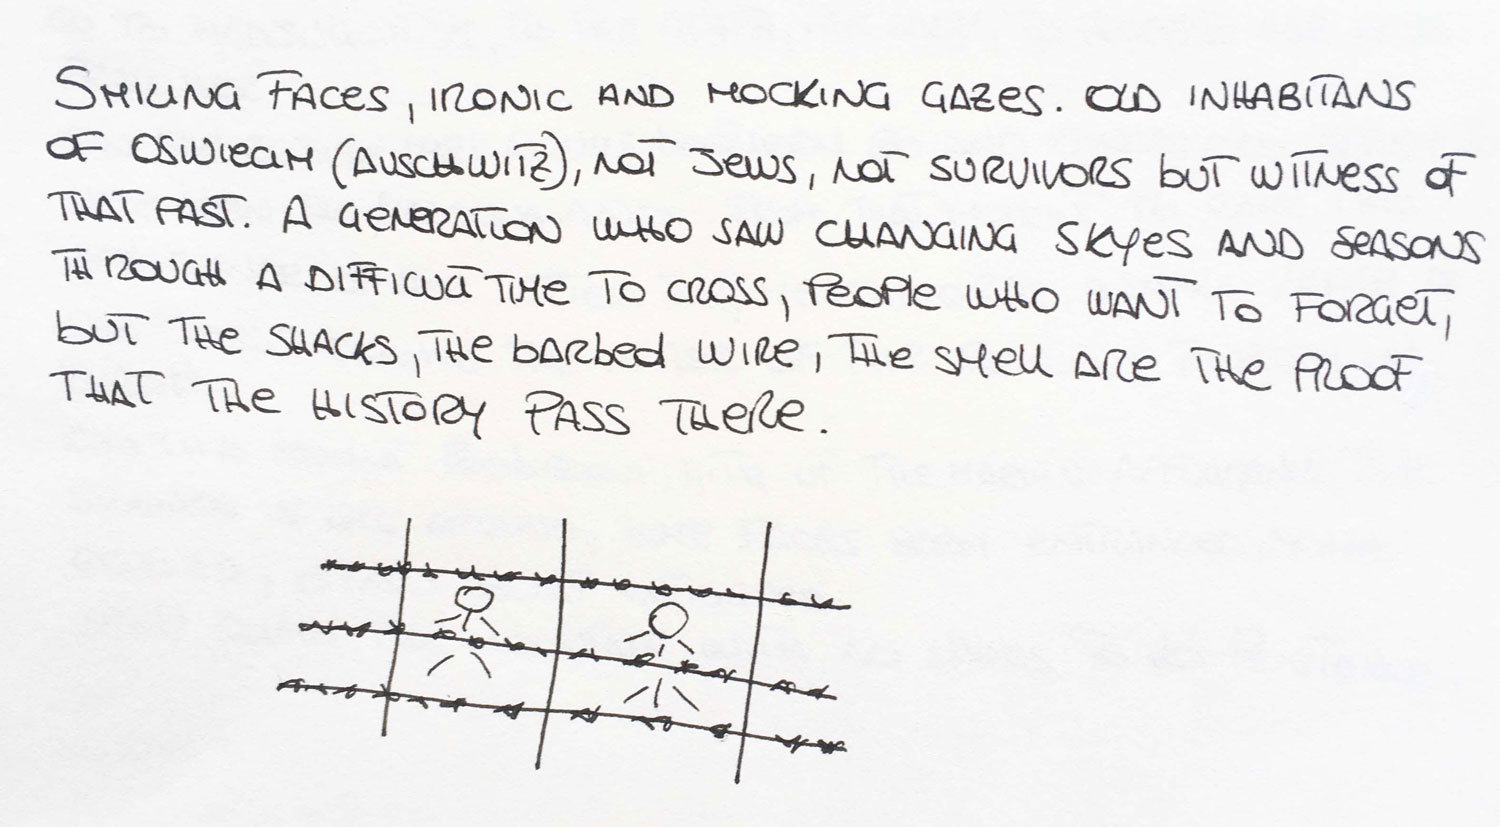 SMILING FACES, IRONIC AND MOCKING GAZES. OLD INHABITANS
OF OSWIECIM (AUSCHWITZ), NOT JEWS, NOT SURVIVORS BUT WITNESS OF
THAT PAST. A GENERATION WHO SAW CHANGING SKYES AND SEASONS
THROUGH A DIFFICULT TIME TO CROSS, PEOPLE WHO WANT TO FORGET,
BUT THE SHACKS, THE BARBED WIRE, THE SMELL ARE THE PROOF
THAT THE HISTORY PASS THERE.